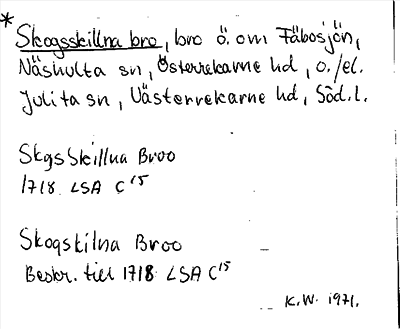 * Skogsskillna bro, bro ö. om Fäbosjön,
Näshulta sn, Österrekarne hd, o./el.
Julita sn, Västerrekarne hd, Söd.l.
SkgsSkillna Broo
1718 LSA C¹⁵
Skogskilna Broo
Beskr. till 1718 LSA C¹⁵
K.W. 1971.